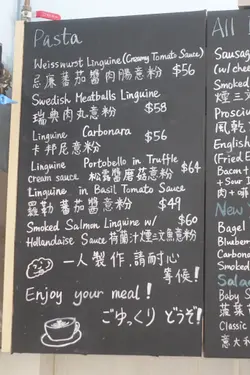 Pasta
Weisswurst Linguine (Creamy Tomato Sauce)
忌廉蕃茄醬肉腸意粉 $56
Swedish Meatballs Linguine
瑞典肉丸意粉 $58
Linguine Carbonara $56
卡邦尼意粉
Linguine Portobello in Truffle
cream sauce 松露醬磨菇意粉 $64
Linguine in Basil Tomato Sauce
羅勒蕃茄醬意粉 $49
Smoked Salmon Linguine w/ $60
Hollandaise Sauce 荷蘭汁煙三文魚意粉
一人製作,請耐心
等候!
Enjoy your meal!
ごゆっくり どうぞ!
All
Sausag
(w/ chee
煙三
Prosciu
Englis
(Fried
Bacon +
+ Sour
New
Bagel
Blueber
Carbona
Smoked
Salad
Baby
菠菜
意大利